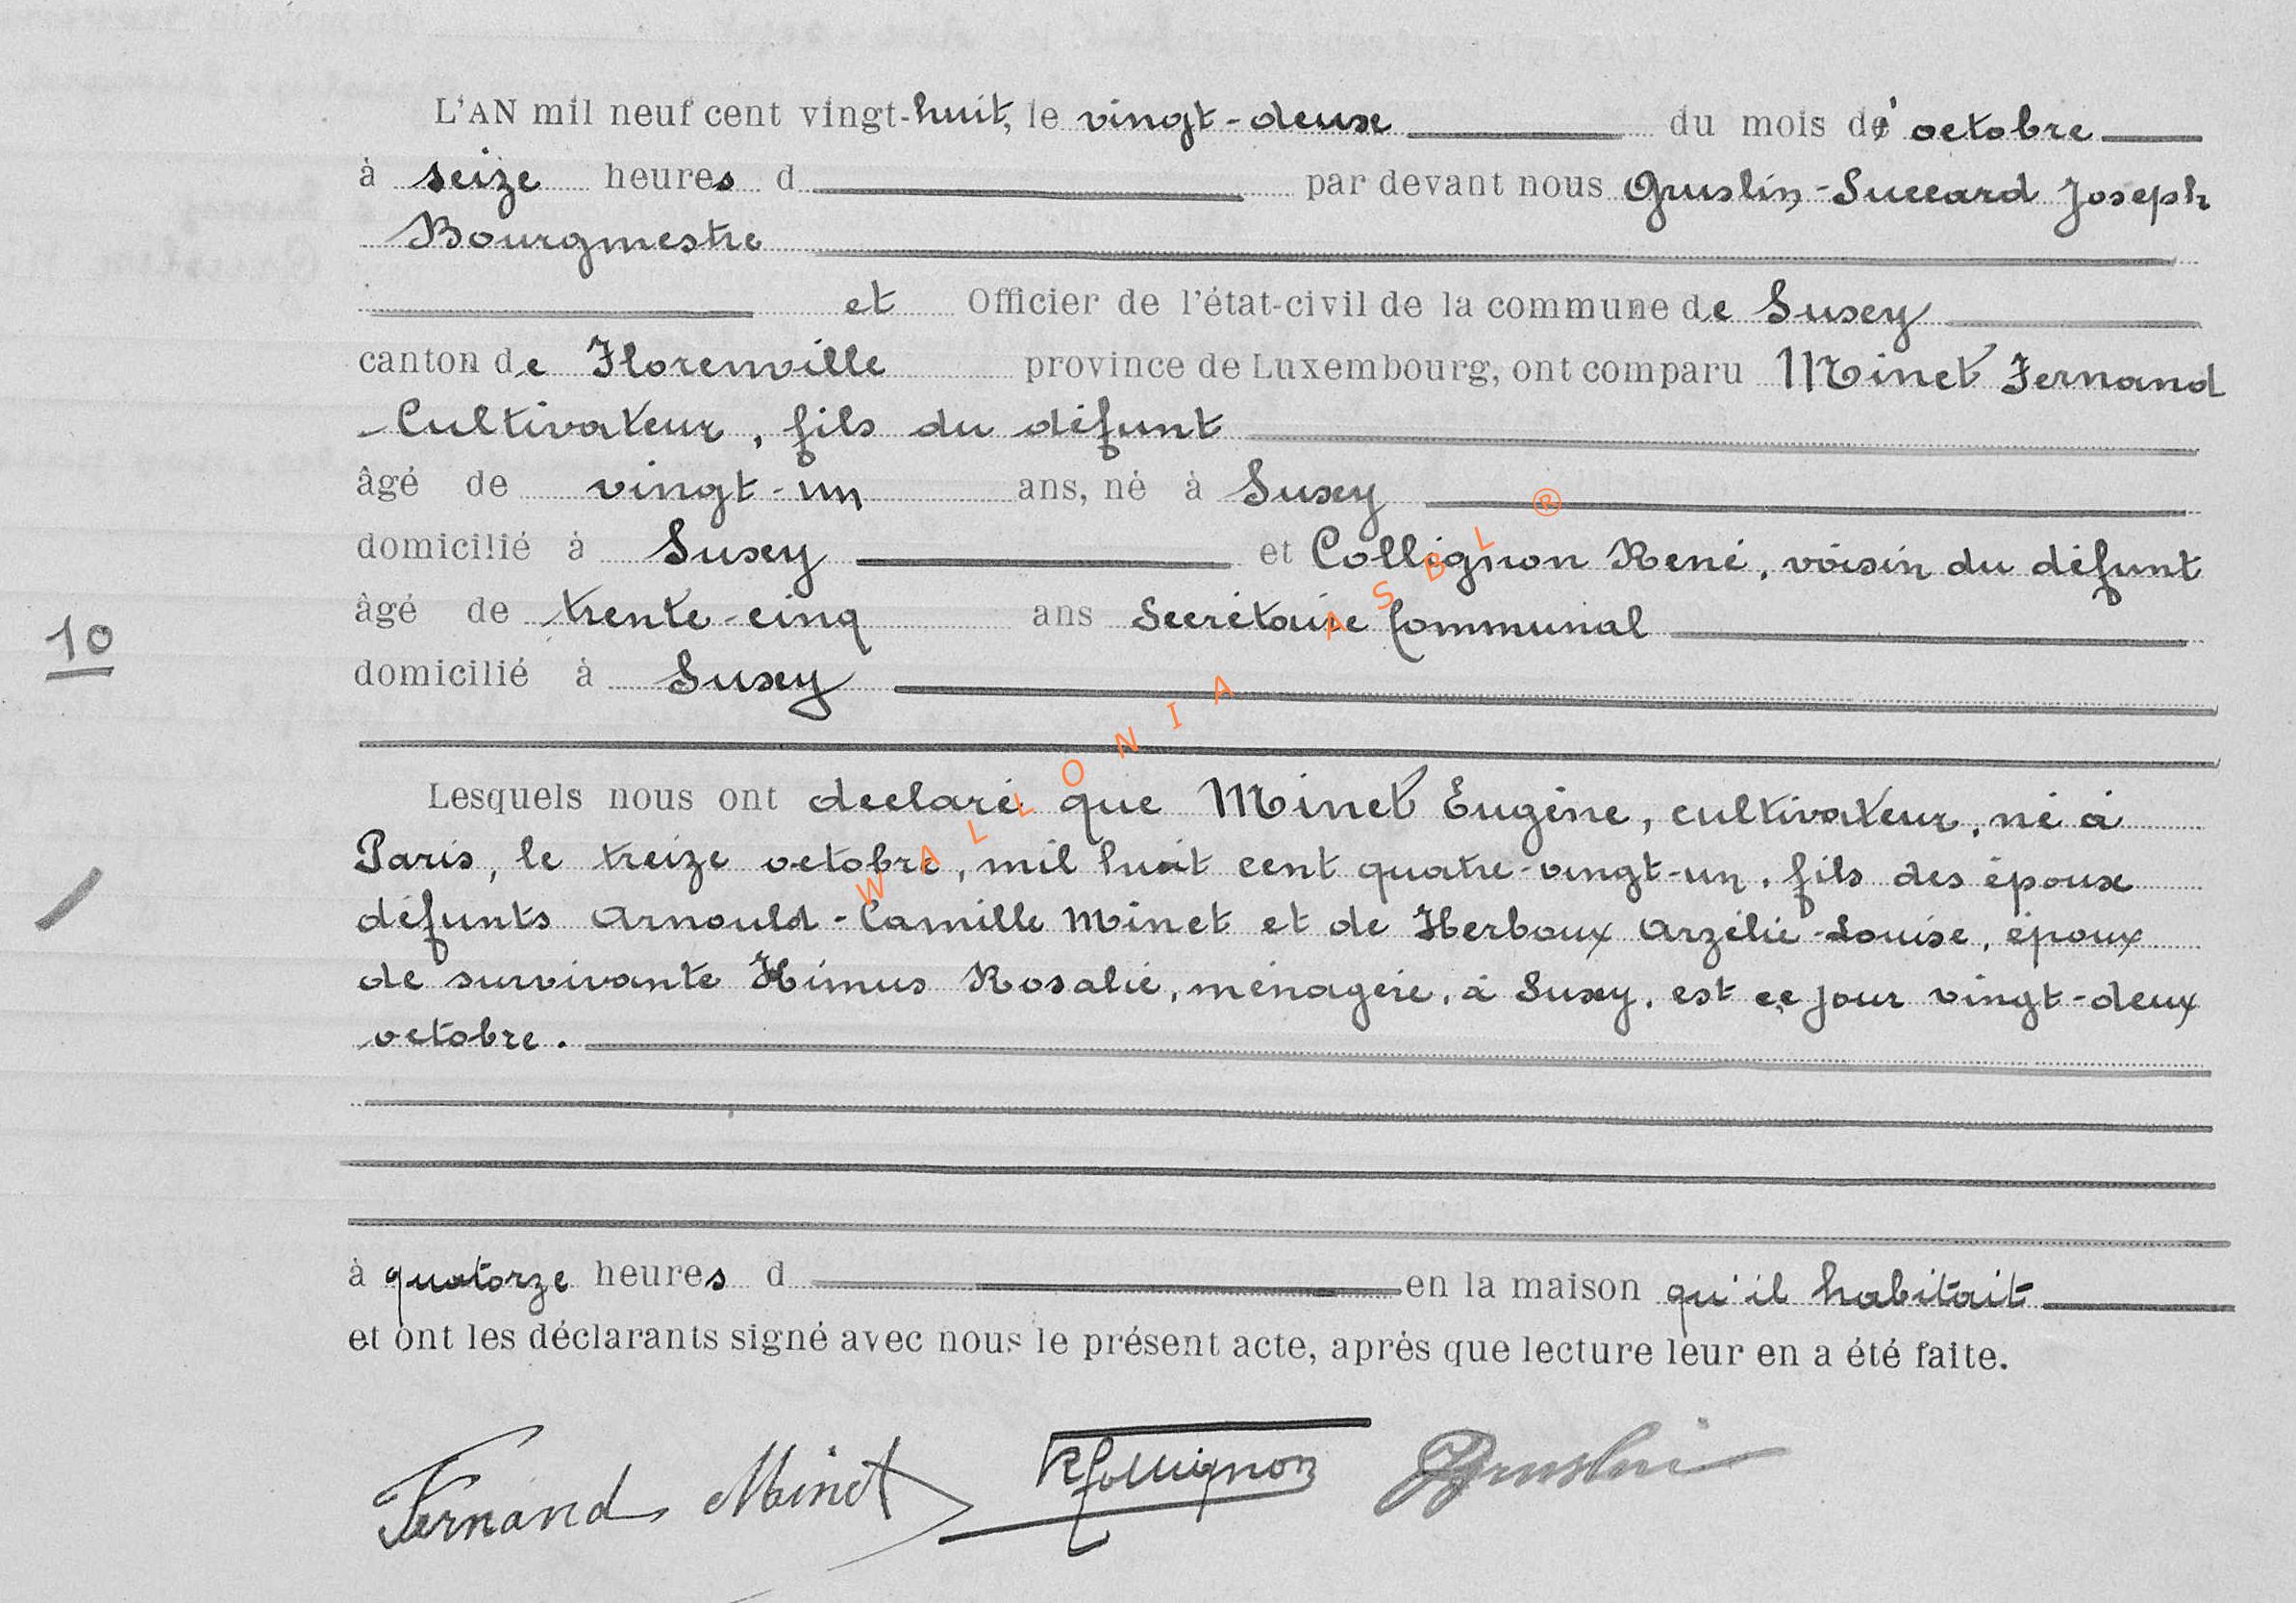 L'AN mil neuf cent vingt-huit, le vingt-deux du mois d'octobre
à seize heures d par devant nous Gruslin-Suceard Joseph
Bourgmestre
et Officier de l'état-civil de la commune de Suxy
canton de Florenville province de Luxembourg, ont comparu Minet Fernand
Cultivateur, fils du défunt
âgé de vingt-un ans, né à Suxy
domicilié à Suxy et Collignon René, voisin du défunt
âgé de trente-cinq ans Secrétaire Communal
10
domicilié à Suxy
Lesquels nous ont declaré que Minet Eugène, cultivateur, né à
Paris, le treize octobre, mil huit cent quatre-vingt-un, fils des époux
défunts Arnould-Camille Minet et de Herboux Arzélie-Louise, époux
de survivante Himus Rosalie, ménagère, à Suxy, est ce jour vingt-deux
octobre.
à quatorze heures d en la maison qu'il habitait
et ont les déclarants signé avec nous le présent acte, après que lecture leur en a été faite.
Fernand Minet RCollignon JGruslin
WALLONIA ASBL ®